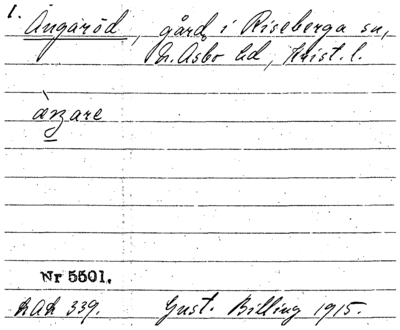 1.
Ängaröd, gård i Riseberga sn,
N. Asbo hd, Krist. l.
ànzare
Nr 5501.
RAÄ 339. Gust. Billing 1915.